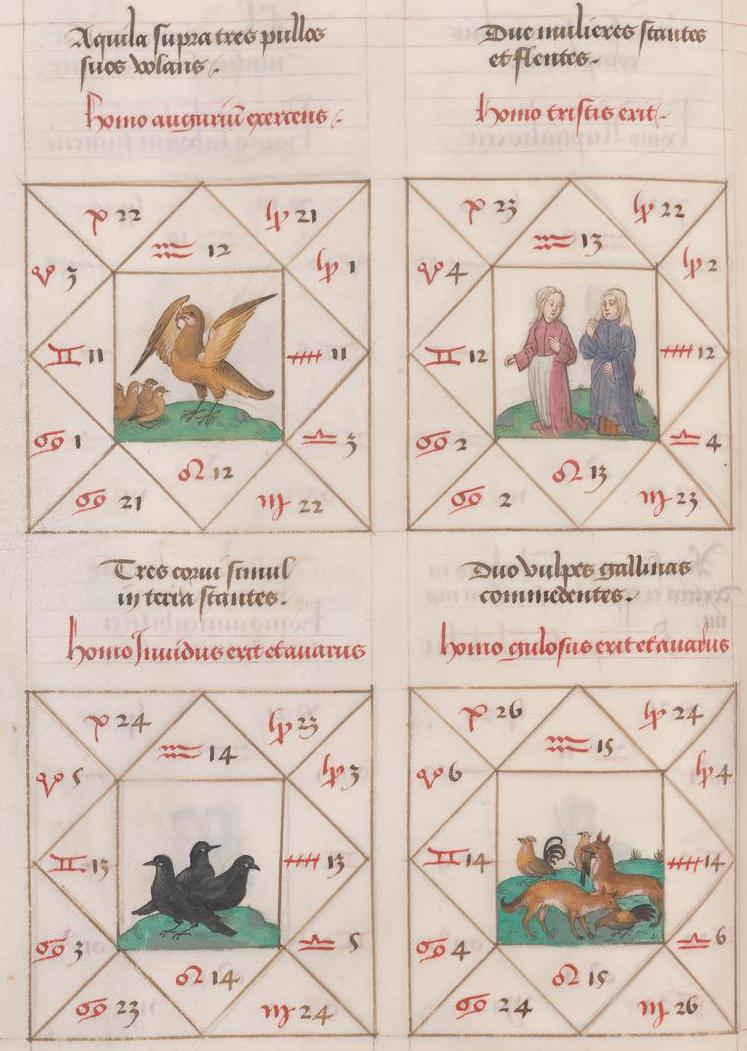 Aquila supra tres pullos
suos volans.
homo auguriū exercens.
♓ 22
♑ 21
♒ 12
♈ 3
♑ 1
♊ 11
♐ 11
♋ 1
♎ 3
♌ 12
♋ 21
♍ 22
Due mulieres stantes
et flentes.
homo tristis erit.
♓ 23
♑ 22
♒ 13
♈ 4
♑ 2
♊ 12
♐ 12
♋ 2
♎ 4
♌ 13
♋ 2
♍ 23
Tres corui simul
in terra stantes.
homo Inuidus erit et auarus
♓ 24
♑ 23
♒ 14
♈ 5
♑ 3
♊ 13
♐ 13
♋ 3
♎ 5
♌ 14
♋ 23
♍ 24
Duo vulpes gallinas
commedentes.
homo gulosus erit et auarus
♓ 26
♑ 24
♒ 15
♈ 6
♑ 4
♊ 14
♐ 14
♋ 4
♎ 6
♌ 15
♋ 24
♍ 26